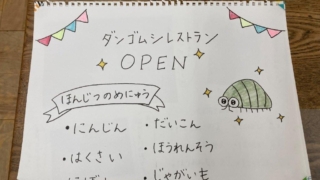 ダンゴムシレストラン
OPEN
ほんじつのめにゅう
・にんじん ・だいこん
・はくさい ・ほうれんそう
・じゃがいも